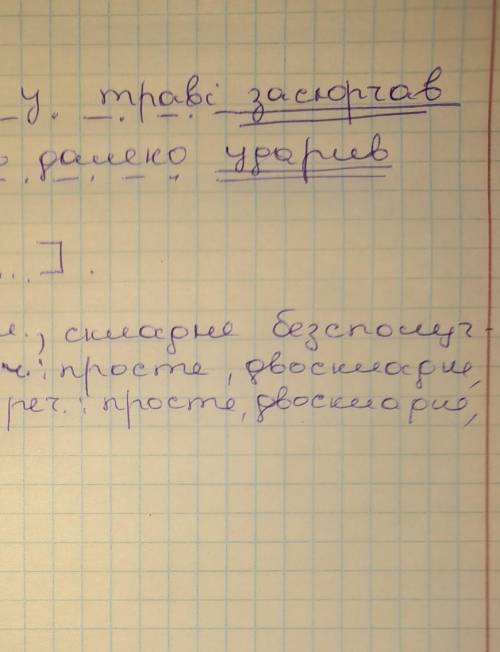 у траві заскорчав
далеко ударив
...].
складне безсполуч-
ч.: просте, двоскладне,
реч.: просте, двоскларне,